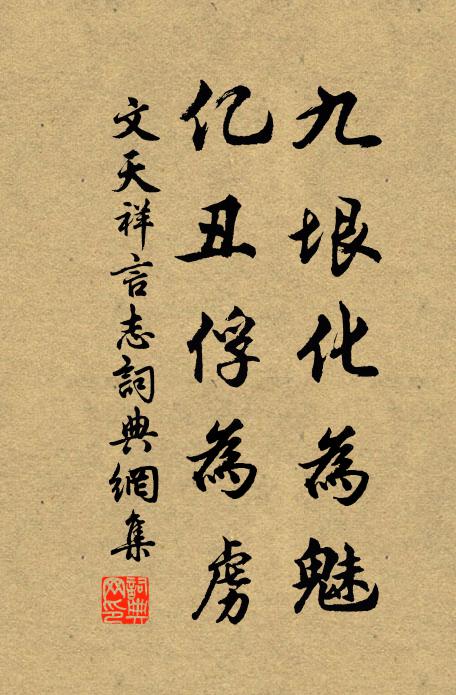 九垠化為魅
亿丑俘為虏
文天祥言志詞典網集
詞典網印